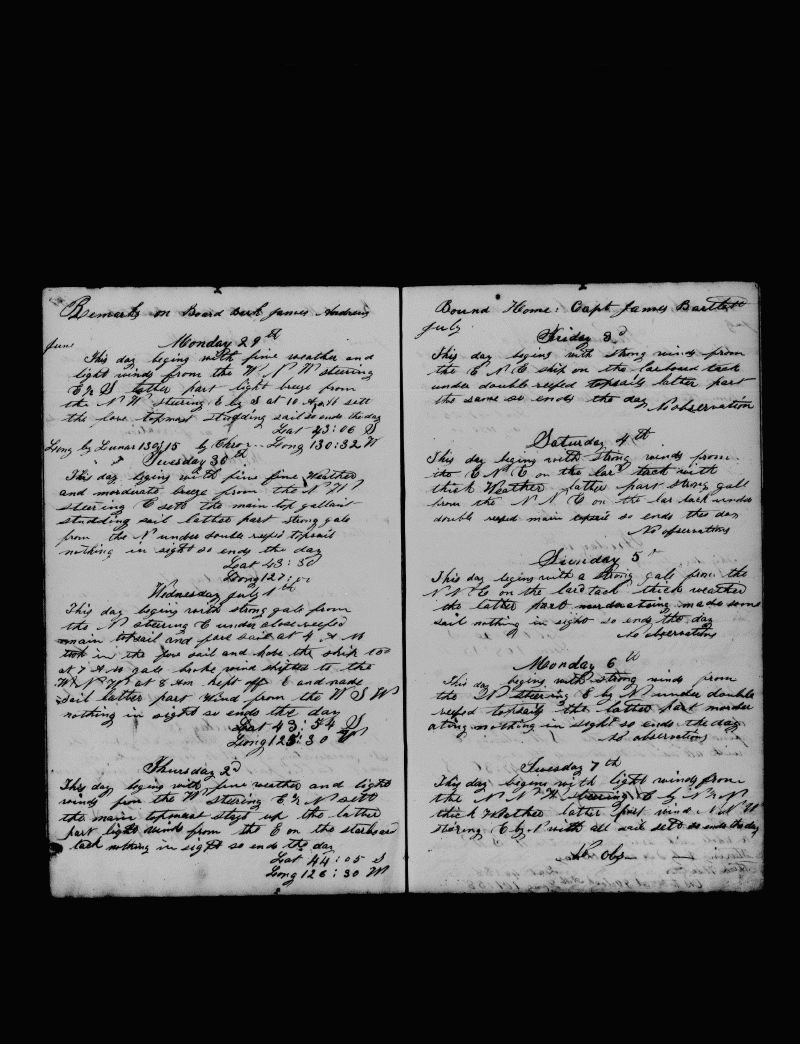 Remarks on Board Bark James Andrews
June
Monday 29th
This day begins with fine weather and
light winds from the W N W steering
E ½ S latter part light breeze from
the N W steering E by S at 10 A M sett
the fore topmast studding sail so ends the day
Lat 43:06 S
Long by Lunar 130:15 by Chro Long 130:32 W
Tuesday 30th
This day begins with fine fine Weather
and morderate breeze from the N W
steering E sett the main top gallant
studding sail latter part strong gale
from the N under double reefed topsail
nothing in sight so ends the day
Lat 43:50
Long 127:00
Wednesday July 1th
This day begins with strong gale from
the N steering E under close reefed
main topsail and fore sail at 4 A M
took in the fore sail and hove the ship too
at 7 A M gale broke wind shifted to the
W N W at 8 Am kept off E and made
sail latter part Wind from the W S W
nothing in sight so ends the day
Lat 43:54 S
Long 125:30 W
Thursday 2d
This day begins with fine weather and light
winds from the W steering E ½ N sett
the main topmast stays up the latter
part light winds from the E on the starboard
tack nothing in sight so ends the day
Lat 44:05 S
Long 126:30 W
Bound Home: Capt James Bartlett
July
Friday 3d
This day begins with strong winds from
the E N E ship on the larboard tack
under double reefed topsails latter part
the same so ends the day
No observation
Saturday 4th
This day begins with strong winds from
the E N E on the lard tack with
thick Weather latter part strong gale
from the N N E on the lar tack under
double reefed main topsail so ends the day
No observations
Sunday 5
This day begins with a strong gale from the
N N E on the lard tack thick weather
the latter part morderating made some
sail nothing in sight so ends the day
No observations
Monday 6th
This day begins with strong winds from
the N steering E by N under double
reefed topsails the latter part morder
ating nothing in sight so ends the day
No observations
Tuesday 7th
This day begins with light winds from
the N N W steering E by N ½ N
thick Weather latter part wind N W
steering E by N with all sail sett so ends the day
No Obs